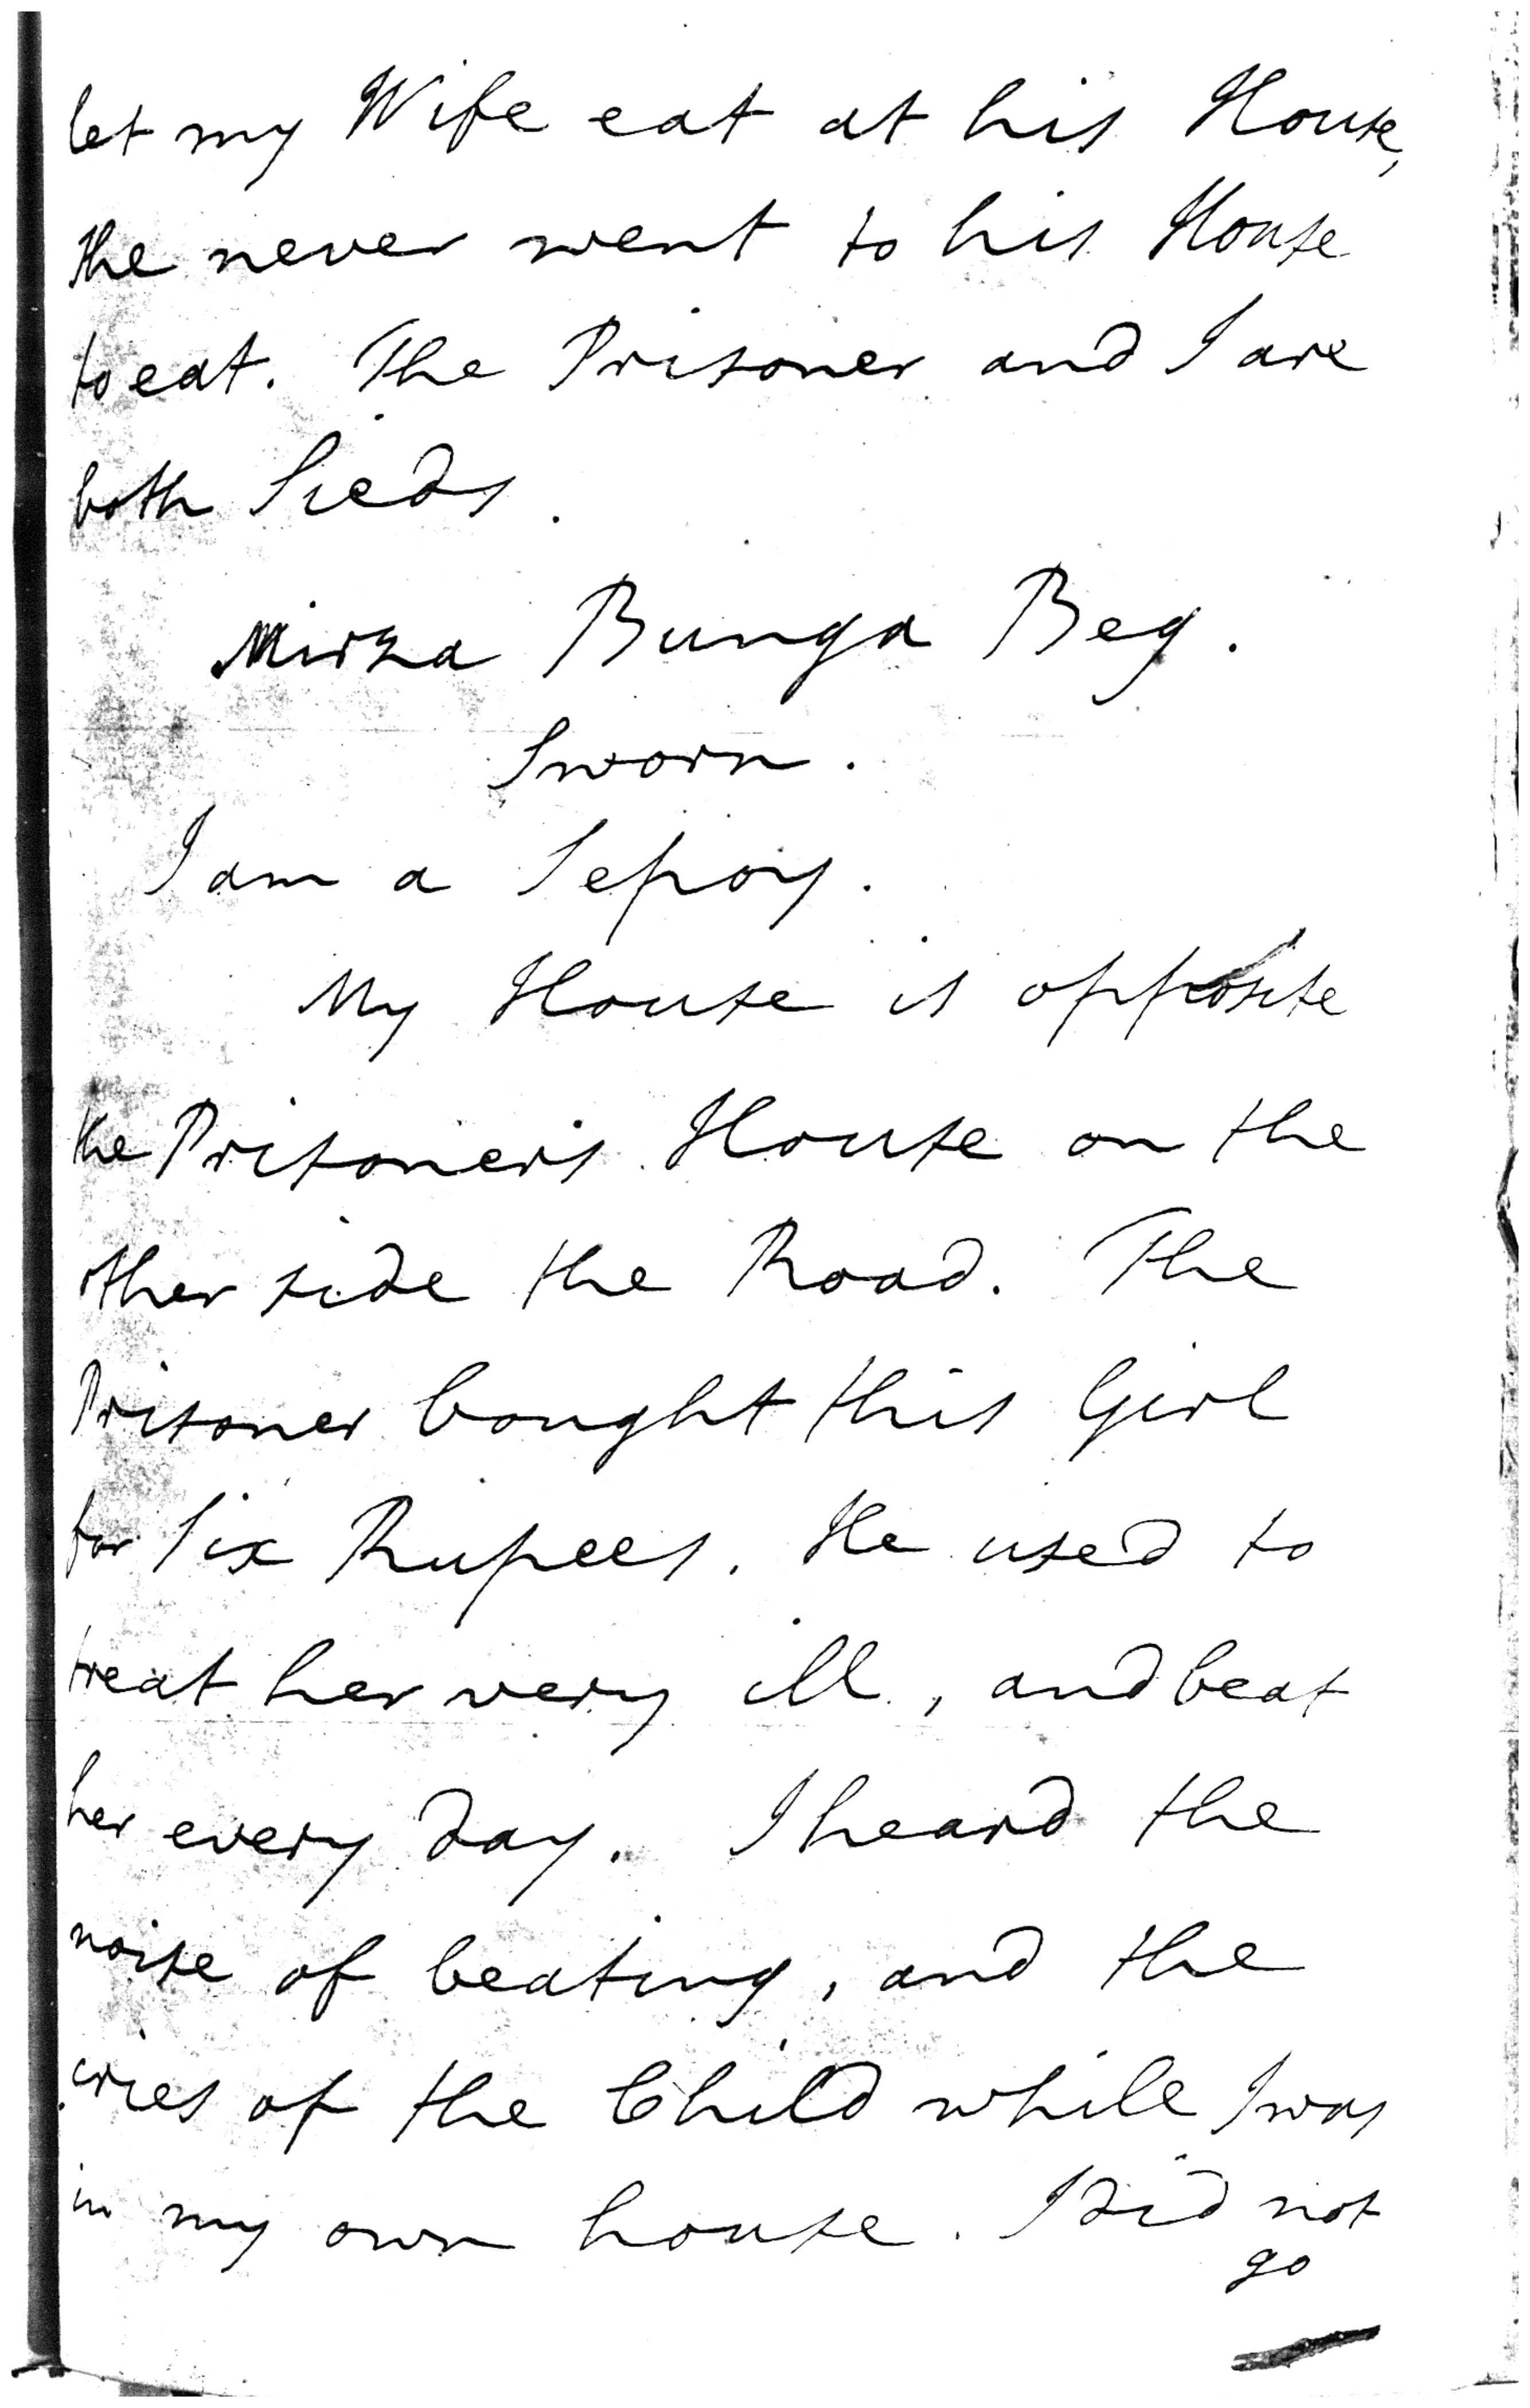 let my Wife eat at his House,
she never went to his House
to eat. The Prisoner and I are
both Sieds.
Mirza Bunga Beg.
Sworn.
I am a Sepoy.
My House is opposite
the Prisoner's House on the
other side the Road. The
Prisoner bought this Girl
for Six Rupees. He used to
treat her very ill, and beat
her every day. I heard the
noise of beating, and the
cries of the Child while I was
in my own house. I did not
go